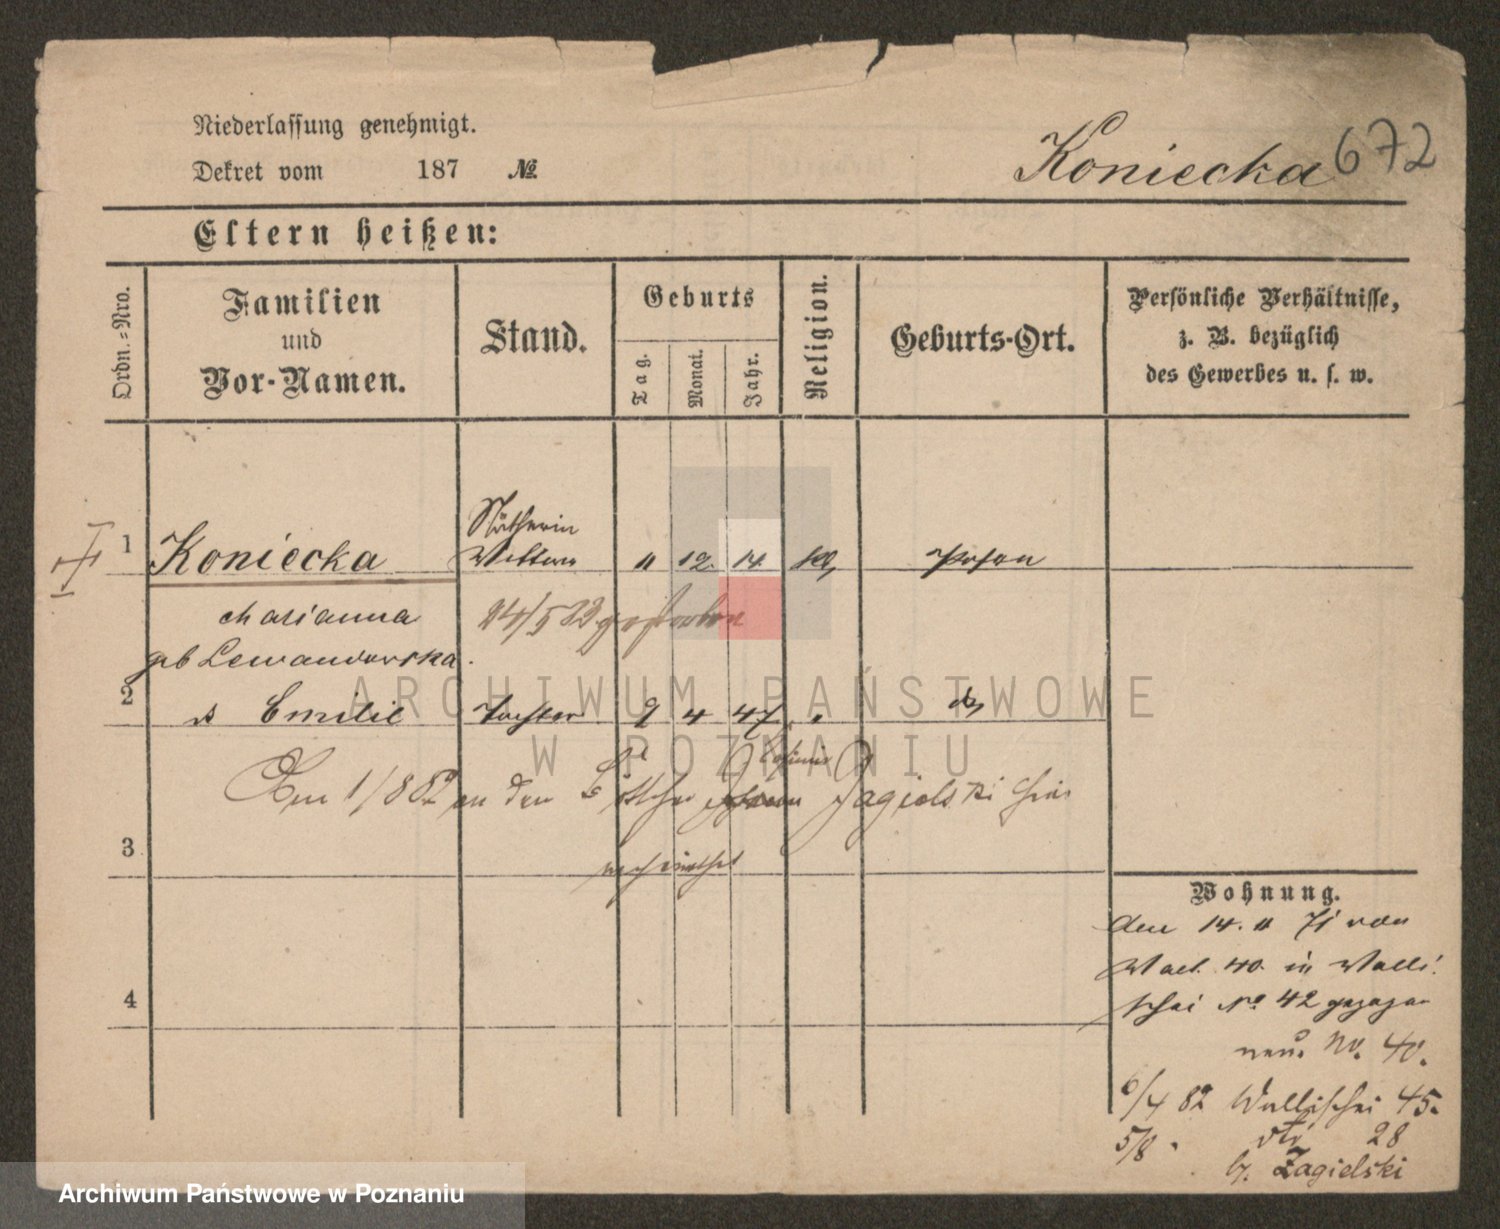 Niederlassung genehmigt.
Dekret vom 187 №
Koniecka 672
Eltern heißen:
Ordn.-Nro.
Familien
und
Vor-Namen.
Stand.
Geburts
Tag.
Monat.
Jahr.
Religion.
Geburts-Ort.
Persönliche Verhältnisse,
z. B. bezüglich
des Gewerbes u. s. w.
Nätherin
1 Koniecka Wittwe " 12. 14. kl, Posen
Marianna
24/5 83 gestorben
geb Lewandowska.
2 Emilie Tochter 9 4 47. " do,
Casimir
Am 1/8 82 an den Böttcher Jagielski hier
verheirathet
3
4
Wohnung.
den 14. 11 71 von
Wall. 40. in Walli-
schei No 42 gezogen
neue No. 40.
6/4 82 Wallischei 45.
5/8 " dto 28
b. Zagielski
ARCHIWUM PAŃSTWOWE
W POZNANIU
Archiwum Państwowe w Poznaniu